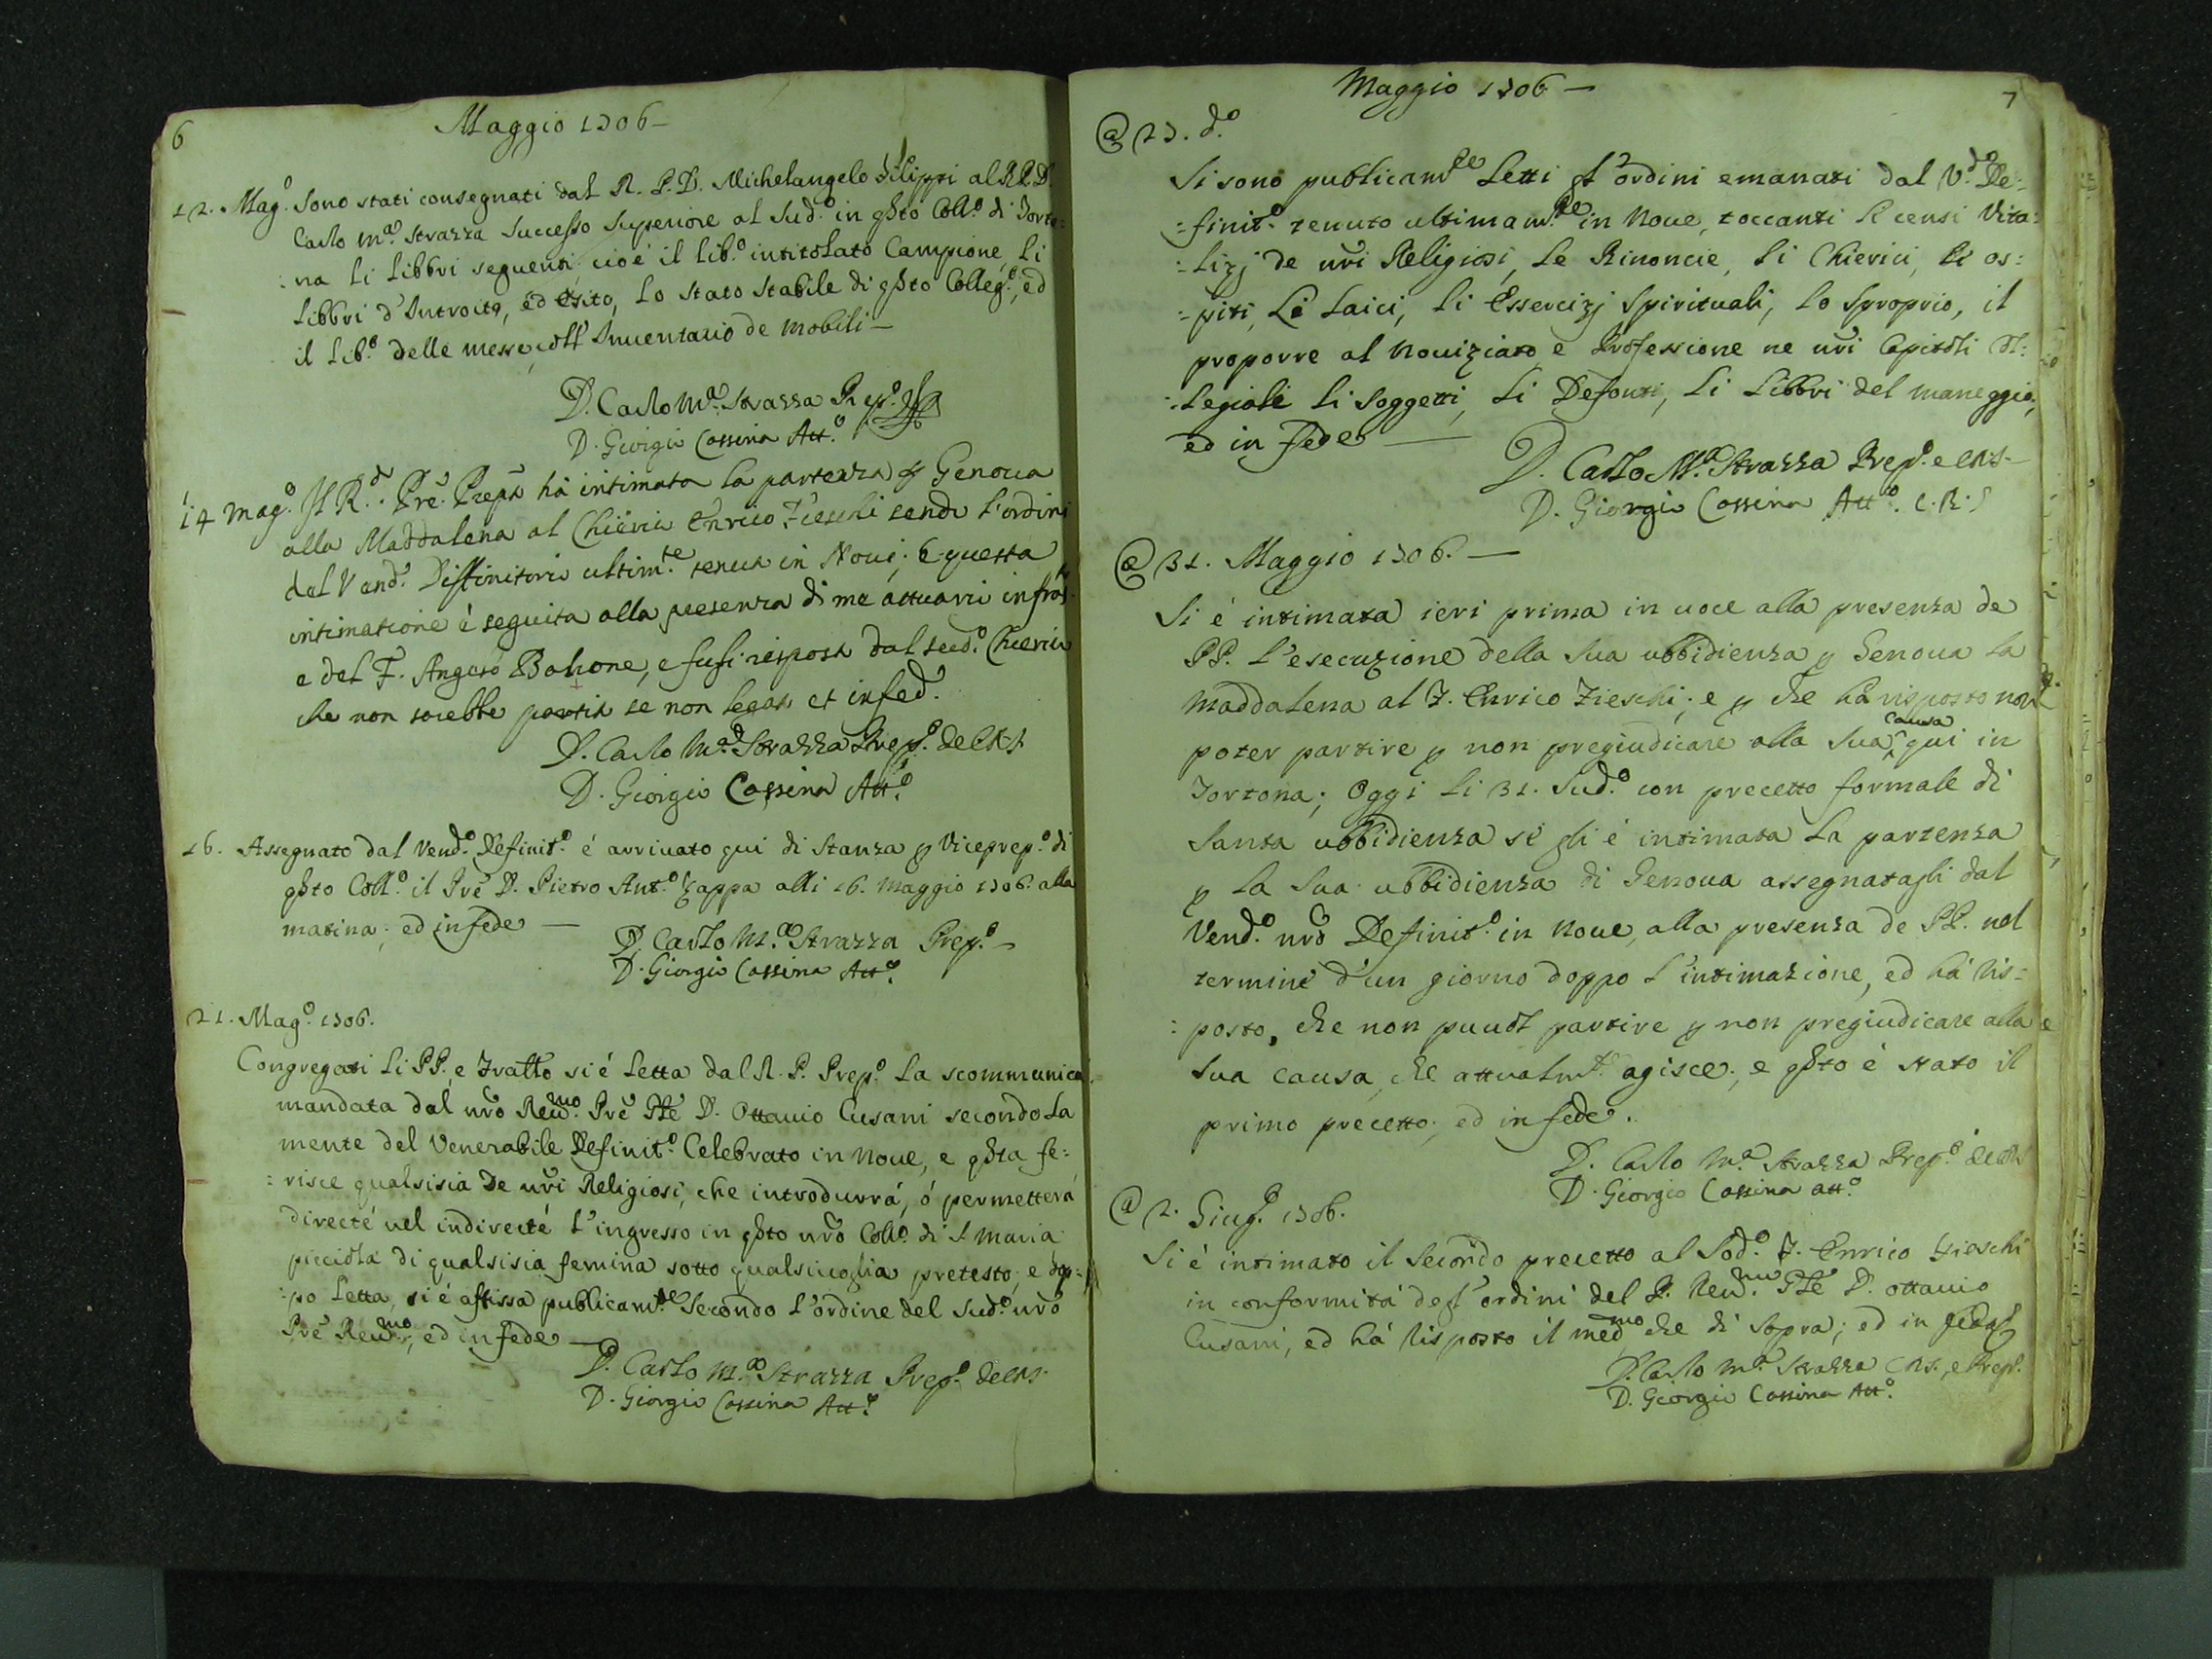 6
Maggio 1706 –
12. Mag.º Sono stati consegnati dal R. P. D. Michelangelo Filippi al R. P. D.
Carlo M.ª Strazza Successo Superiore al Sud.º in gsto Coll.º di Torto:
:na li libbri seguenti cioé il lib.º intitolato Campione, li
libbri d'Introito, ed Esito, lo stato stabile di gsto Colleg.º, ed
il lib.º delle messe, coll' Inventario de mobili –
D. Carlo M.ª Strazza Prep.º
D. Giorgio Cassina Att.º
14 mag.º Il R.d Prē Prepō hà intimata la partenza p Genova
alla Maddalena al Chierico Enrico Fieschi sendo l'ordini
dal Vend.º Diffinitorio ultim.te tenuta in Novi; E questa
intimatione è seguita alla presenza di me attuario infras.to
e del F. Angelo Bohone, e fusi risposta dal sud.º Chierico
che non sarebbe partito se non legato et infed.
D. Carlo M.ª Strazza Prep.º de CRS
D. Giorgio Cassina Att.º
16. Assegnato dal Vend.º Definit.º é arrivato qui di Stanza p Viceprep.º di
gsto Coll.º il Prē D. Pietro Ant.º Zappa alli 16. maggio 1706. alla
matina; ed in fede —
D. Carlo M.ª Strazza Prep.º –
D. Giorgio Cassina Att.º
21. Mag.º 1706.
Congregati li PP. e Fratto si é letta dal R. P. Prep.º la scommunica
mandata dal nrō Reu.mo Prē Gñle D. Ottauio Cusani secondo la
mente del Venerabile Definit.º Celebrato in Noue, e gsta fe:
:risce qualsisia de nrī Religiosi, che introdurrá, ó permetterá
directé uel indirecté l'ingresso in gsto nrō Coll.º di S. Maria
picciola di qualsisia femina sotto qualsiuoglia pretesto; e dop:
:po letta, si é affissa publicam.te Secondo l'ordine del Sud.º nrō
Prē Reu.mo, ed in fede —
D. Carlo M.ª Strazza Prep.º de CRS.
D. Giorgio Cassina Att.º
Maggio 1706 –
7
@ 23. d.º
Si sono publicam.te Letti gl'ordini emanati dal V.d De:
:finit.º tenuto ultimam.te in Noue, toccanti li censi Vita:
:lizj de nrī Religiosi, le Rinoncie, li Chierici, li os:
:piti, Le Laici, li Essercizj Spirituali, lo Sproprio, il
proporre al Nouiziato e Professione ne nrī Capitoli Col:
:legiali li soggetti, li Defonti, li Libbri del maneggio;
ed in fede —
D. Carlo M.ª Strazza Prep.º e CRS –
D. Giorgio Cassina Att.º C.R.S
@ 31. Maggio 1706. —
Si é intimata ieri prima in uoce alla presenza de
PP. l'esecuzione della sua ubbidienza p Genoua la
Maddalena al F. Enrico Fieschi; e p che há risposto non
poter partire p non pregiudicare alla sua causa qui in
Tortona; Oggi li 31. Sud.º con precetto formale di
Santa ubbidienza se gli é intimata la partenza
p la Sua ubbidienza di Genoua assegnatagli dal
Vend.º nrō Definit.º in Noue, alla presenza de PP. nel
termine d'un giorno doppo l'intimazione, ed há Ris:
:posto, che non puuol partire p non pregiudicare alla
sua causa, che attualm.te agisce; e gsto é stato il
primo precetto; ed in fede.
D. Carlo M.ª Strazza Prep.º de CRS
D. Giorgio Cassina att.º
@ 2. Giug.º 1706.
Si é intimato il Secondo precetto al Sod.º F. Enrico Fieschi
in conformitá degl'ordini del P. Reu.mo Gñle D. Ottauio
Cusani, ed há Risposto il med.mo che di sopra; ed in fede
D. Carlo M.ª Strazza CRS., e Prep.º
D. Georgio Cassina Att.º